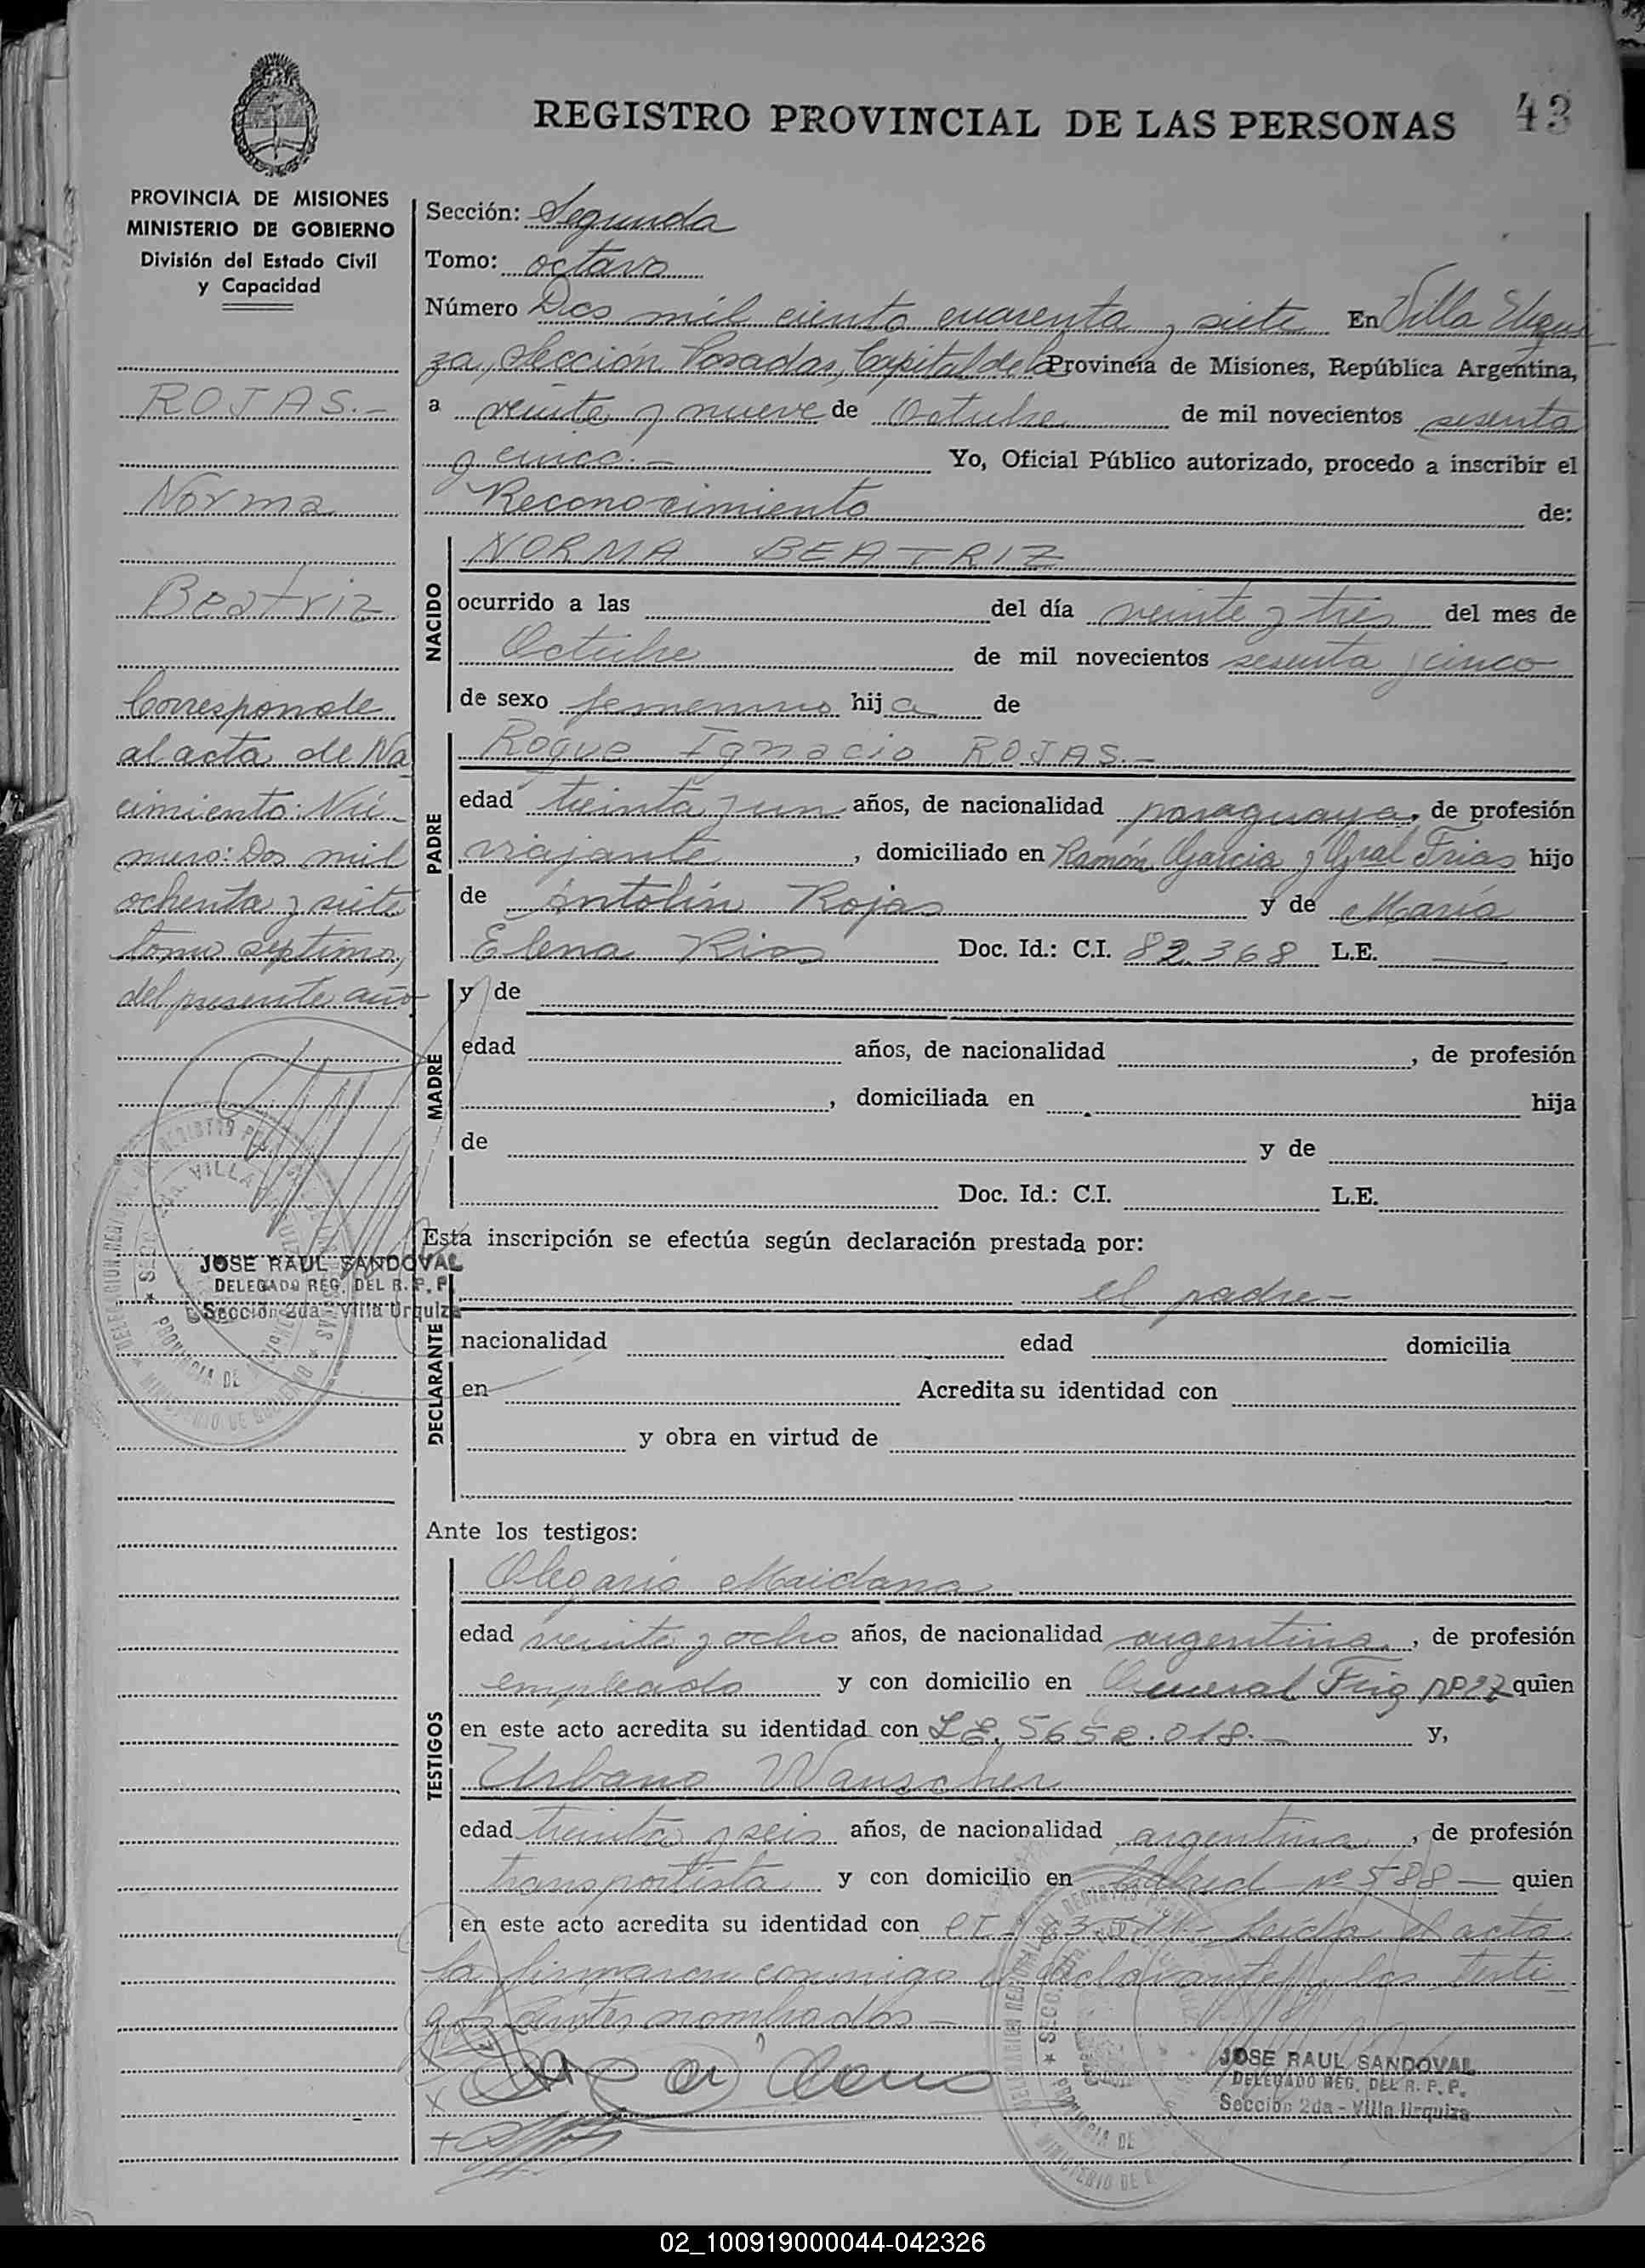 REGISTRO PROVINCIAL DE LAS PERSONAS 43
PROVINCIA DE MISIONES
MINISTERIO DE GOBIERNO
División del Estado Civil
y Capacidad
ROJAS.-
Norma
Beatriz
Corresponde
al acta de Na
cimiento: Nú-
mero: Dos mil
ochenta y siete
tomo septimo,
del presente año
JOSE RAUL SANDOVAL
DELEGADO REG. DEL R. P. P.
Sección 2da - Villa Urquiza
Sección: Segunda
Tomo: octavo
Número Dos mil ciento cuarenta y siete En Villa Urqui
za, Sección Posadas, Capital de la Provincia de Misiones, República Argentina,
a veinte y nueve de Octubre de mil novecientos sesenta
y cinco.- Yo, Oficial Público autorizado, procedo a inscribir el
Reconocimiento de:
NACIDO
NORMA BEATRIZ
ocurrido a las del día veinte y tres del mes de
Octubre de mil novecientos sesenta y cinco
de sexo femenino hija de
PADRE
Roque Ignacio ROJAS.-
edad treinta y un años, de nacionalidad paraguaya, de profesión
viajante, domiciliado en Ramón Garcia y Gral Frias hijo
de Antolín Rojas y de María
Elena Rios Doc. Id.: C.I. 82.368 L.E. —
MADRE
y de
edad años, de nacionalidad , de profesión
, domiciliada en hija
de y de
Doc. Id.: C.I. L.E.
Esta inscripción se efectúa según declaración prestada por:
DECLARANTE
el padre-
nacionalidad edad domicilia
en Acredita su identidad con
y obra en virtud de
Ante los testigos:
TESTIGOS
Olegario Maidana
edad veinte y ocho años, de nacionalidad argentina, de profesión
empleado y con domicilio en General Frig nº 27 quien
en este acto acredita su identidad con L.E. 5652.018.- y,
Urbano Wauscher
edad treinta y seis años, de nacionalidad argentina, de profesión
transportista y con domicilio en nº 588 — quien
en este acto acredita su identidad con Leida el acta
la firmaron conmigo el declarante y los testi
gos antes nombrados-
JOSE RAUL SANDOVAL
DELEGADO REG. DEL R. P. P.
Sección 2da - Villa Urquiza
02_100919000044-042326